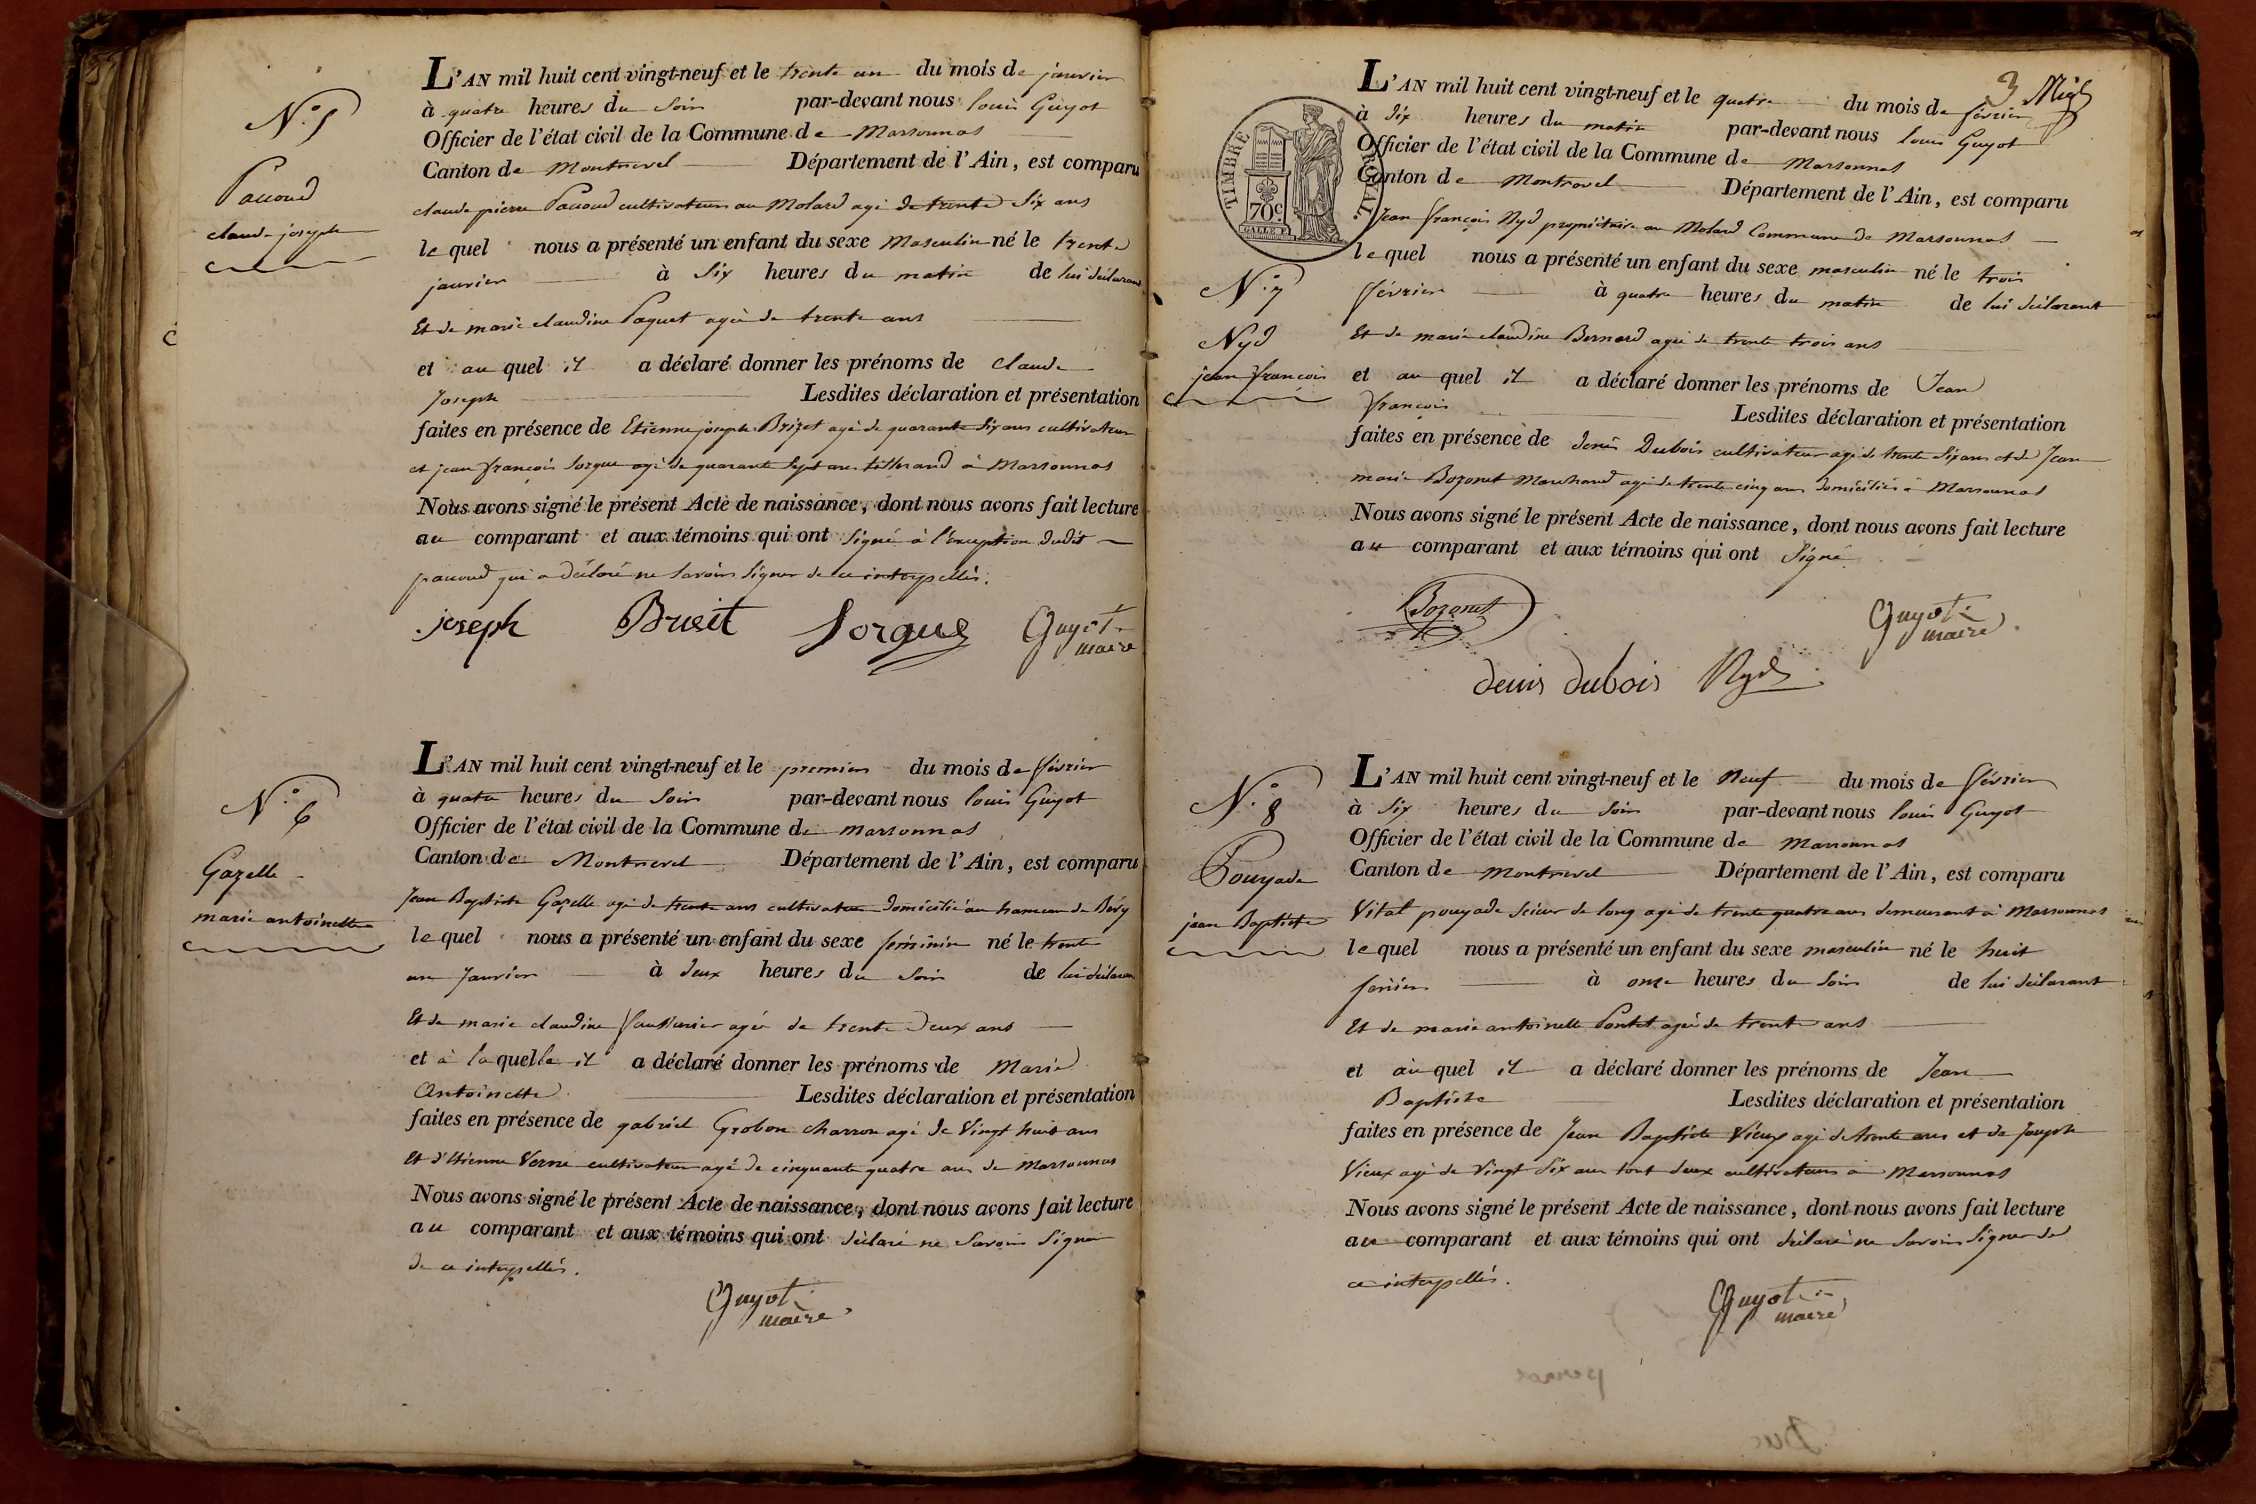 N.° 5
Pauoud
claude joseph
L'AN mil huit cent vingt-neuf et le trente un du mois de janvier
à quatre heures du Soir par-devant nous louis Guyot
Officier de l'état civil de la Commune de Marsonnas
Canton de Montrevel Département de l'Ain, est comparu
claude pierre Pauoud cultivateur au Molard agé de trente Six ans
le quel nous a présenté un enfant du sexe Masculin né le trente
janvier à Six heures du matin de lui déclarant
Et de marie claudine Paquet agée de trente ans
et au quel il a déclaré donner les prénoms de Claude
Joseph Lesdites déclaration et présentation
faites en présence de Etienne joseph Brizet agé de quarante Six ans cultivateur
et jean françois Sorgue agé de quarante Sept ans tisserand à Marsonnas
Nous avons signé le présent Acte de naissance, dont nous avons fait lecture
au comparant et aux témoins qui ont Signé à l'exception dudit
pauoud qui a déclaré ne Savoir Signer de ce interpellés.
joseph Brisit Sorgue Guyot
maire
N.° 6
Gazelle
marie antoinette
L'AN mil huit cent vingt-neuf et le premier du mois de février
à quatre heures du Soir par-devant nous louis Guyot
Officier de l'état civil de la Commune de marsonnas
Canton de Montrevel Département de l'Ain, est comparu
Jean Baptiste Gazelle agé de trente ans cultivateur domicilié au hameau de Bévy
le quel nous a présenté un enfant du sexe féminin né le trente
un Janvier à deux heures du Soir de lui déclarant
Et de marie claudine agée de trente Deux ans
et à laquelle il a déclaré donner les prénoms de Marie
Antoinette Lesdites déclaration et présentation
faites en présence de gabriel Grobon charron agé de Vingt huit ans
Et d'Etienne Verne cultivateur agé de cinquante quatre ans de Marsonnas
Nous avons signé le présent Acte de naissance, dont nous avons fait lecture
au comparant et aux témoins qui ont déclaré ne Savoir Signer
de ce interpellés.
Guyot
maire
3
TIMBRE ROYAL.
70c.
N.° 7
Nyd
jean françois
L'AN mil huit cent vingt-neuf et le quatre du mois de février
à dix heures du matin par-devant nous louis Guyot
Officier de l'état civil de la Commune de Marsonnas
Canton de Montrevel Département de l'Ain, est comparu
Jean françois Nyd propriétaire au Molard Commune de Marsonnas
le quel nous a présenté un enfant du sexe masculin né le trois
février à quatre heures du matin de lui déclarant
Et de marie claudine Bernard agée de trente trois ans
et au quel il a déclaré donner les prénoms de Jean
françois Lesdites déclaration et présentation
faites en présence de denis Dubois cultivateur agé de trente Six ans et de Jean
marie Bozonet Marchand agé de trente cinq ans domiciliés à Marsonnas
Nous avons signé le présent Acte de naissance, dont nous avons fait lecture
au comparant et aux témoins qui ont Signé
Bozonet Guyot
maire
denis dubois Nyd
N.° 8
Pouyade
jean Baptiste
L'AN mil huit cent vingt-neuf et le Neuf du mois de février
à Six heures du Soir par-devant nous louis Guyot
Officier de l'état civil de la Commune de Marsonnas
Canton de Montrevel Département de l'Ain, est comparu
Vital pouyade Scieur de long agé de trente quatre ans demeurant à Marsonnas
le quel nous a présenté un enfant du sexe masculin né le huit
février à onze heures du Soir de lui déclarant
Et de marie antoinette Pontet agée de trente ans
et au quel il a déclaré donner les prénoms de Jean
Baptiste Lesdites déclaration et présentation
faites en présence de Jean Baptiste Vieux agé de trente ans et de Joseph
Vieux agé de Vingt Six ans tout deux cultivateurs à Marsonnas
Nous avons signé le présent Acte de naissance, dont nous avons fait lecture
au comparant et aux témoins qui ont déclaré ne Savoir Signer de
ce interpellés.
Guyot
maire